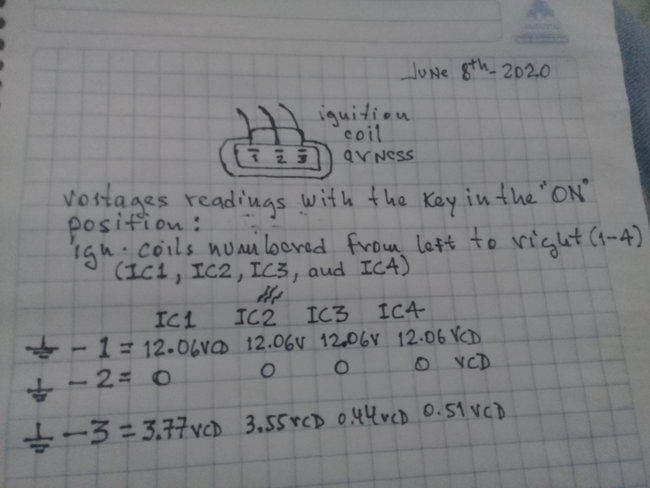 June 8th-2020
ignition
coil
arness
1 2 3
voltages readings with the key in the "ON"
position:
ign. coils numbered from left to right (1-4)
(IC1, IC2, IC3, and IC4)
IC1 IC2 IC3 IC4
⏚ - 1 = 12.06VCD 12.06V 12.06V 12.06 VCD
⏚ - 2 = 0 0 0 0 VCD
⏚ - 3 = 3.77VCD 3.55VCD 0.44VCD 0.51VCD